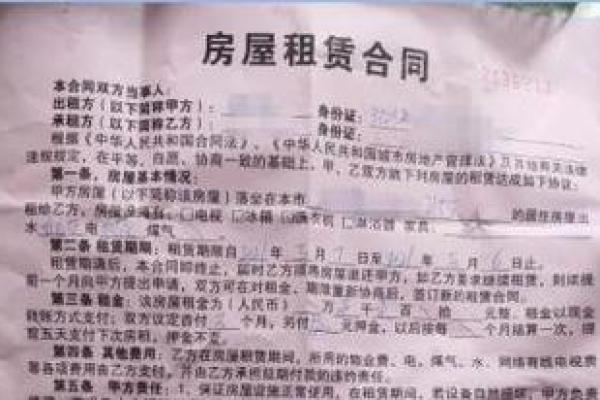 房屋租赁合同
本合同双方当事人：
出租方（以下简称甲方）： 身份证：
承租方（以下简称乙方）： 身份证：
根据《中华人民共和国合同法》、《中华人民共和国城市房地产管理法》及其他有关法律
法规规定，在平等、自愿、协商一致的基础上，甲、乙双方就下列房屋的租赁达成如下协议：
第一条、房屋基本情况：
甲方房屋（以下简称该房屋）落坐在本市 的居住房屋出
租给乙方，房屋设施有：□电视 □冰箱 □洗衣机 □淋浴器 家具、
水 电 煤气
第二条 租赁期限：租赁期限自 年 月 日至 年 月 6 日止。
租赁期满后，本合同即终止，届时乙方须将房屋退还甲方，如乙方要求继续租赁，则须提
前一个月向甲方提出申请，双方可在对租金、期限重新协商后，签订新的租赁合同。
第三条 租金：该房屋租金为（人民币） 万 千 百 拾 元整。租金以现金
转账方式支付；双方议定首付 个月，另付 元押金，以后按每 个月结算一次，提
前五天支付下次房租，押金不变。
第四条 其他费用：乙方在房屋租赁期间，所用的物业费、电、煤气、水、网络有线电视票
等各项费用由乙方支付，并由乙方承担延期付款的违约责任。
第五条 甲方责任：1、保证房屋设施正常使用，在租赁期间，若设备自然损坏，甲方负